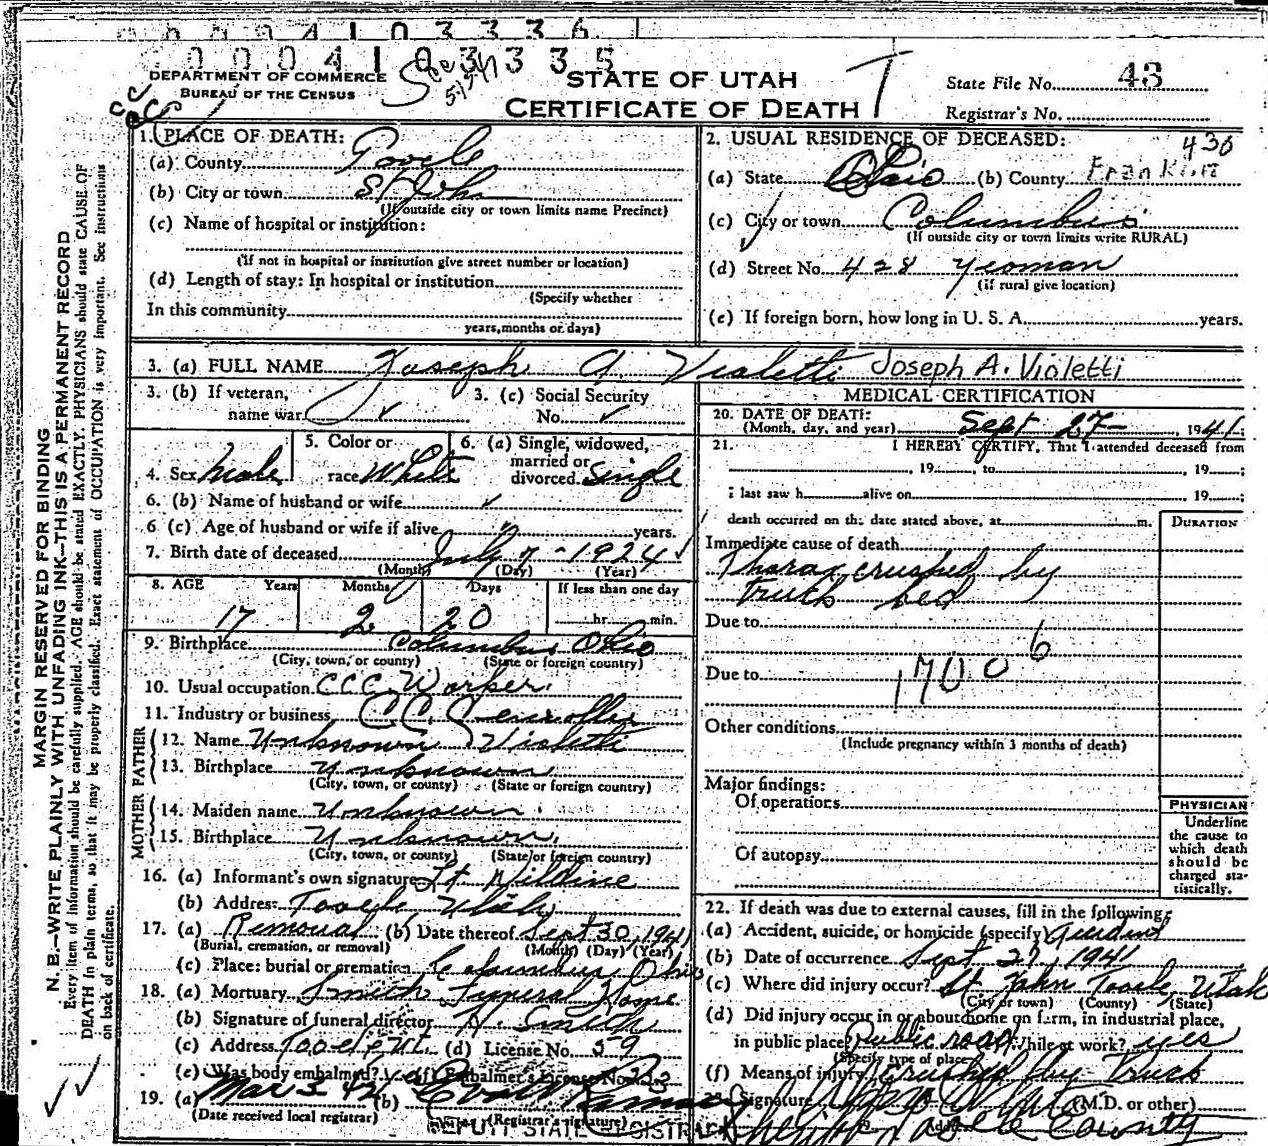 0 0 0 4 1 0 3 3 3 6
0 0 0 4 1 0 3 3 3 5
DEPARTMENT OF COMMERCE
BUREAU OF THE CENSUS
5-15-47
STATE OF UTAH
CERTIFICATE OF DEATH
T
State File No. 43
Registrar's No.
MARGIN RESERVED FOR BINDING
N. B.—WRITE PLAINLY WITH UNFADING INK—THIS IS A PERMANENT RECORD
Every item of information should be carefully supplied. AGE should be stated EXACTLY. PHYSICIANS should state CAUSE OF
DEATH in plain terms, so that it may be properly classified. Exact statement of OCCUPATION is very important. See instructions
on back of certificate.
1. PLACE OF DEATH:
(a) County Tooele
(b) City or town St John
(If outside city or town limits name Precinct)
(c) Name of hospital or institution:
(If not in hospital or institution give street number or location)
(d) Length of stay: In hospital or institution
(Specify whether
In this community
years, months or days)
2. USUAL RESIDENCE OF DECEASED:
430
(a) State Ohio (b) County Franklin
(c) City or town Columbus
(If outside city or town limits write RURAL)
(d) Street No. 428 Yeoman
(if rural give location)
(e) If foreign born, how long in U. S. A. years.
3. (a) FULL NAME Joseph A. Violetti Joseph A. Violetti
3. (b) If veteran, 3. (c) Social Security
name war No.
4. Sex Male 5. Color or race White 6. (a) Single, widowed, married or divorced. Single
6. (b) Name of husband or wife
6 (c) Age of husband or wife if alive years.
7. Birth date of deceased July 7 - 1924
(Month) (Day) (Year)
8. AGE Years Months Days If less than one day
17 2 20 hr. min.
9. Birthplace Columbus Ohio
(City, town, or county) (State or foreign country)
10. Usual occupation CCC Worker
11. Industry or business CCC Enrollee
FATHER
12. Name Unknown Violetti
13. Birthplace Unknown
(City, town, or county) (State or foreign country)
MOTHER
14. Maiden name Unknown
15. Birthplace Unknown
(City, town, or county) (State or foreign country)
16. (a) Informant's own signature Lt.
(b) Address Tooele Utah
17. (a) Removal (b) Date thereof Sept 30, 1941
(Burial, cremation, or removal) (Month) (Day) (Year)
(c) Place: burial or cremation Columbus, Ohio
18. (a) Mortuary Smith Funeral Home
(b) Signature of funeral director H. Smith
(c) Address Tooele Ut. (d) License No. 59
(e) Was body embalmed? (f) Embalmer's License No.
19. (a) Mar 3 42 (b)
(Date received local registrar) (Registrar's signature)
DEPUTY STATE REGISTRAR
MEDICAL CERTIFICATION
20. DATE OF DEATH:
(Month, day, and year) Sept 27- 1941.
21. I HEREBY CERTIFY, That I attended deceased from
, 19 , to , 19 ;
i last saw h alive on 19 ;
death occurred on the date stated above, at m.
DURATION
Immediate cause of death
Thorax crushed by
truck bed
Due to
Due to 170 0 6
Other conditions
(Include pregnancy within 3 months of death)
Major findings:
Of operations
Of autopsy
PHYSICIAN
Underline
the cause to
which death
should be
charged sta-
tistically.
22. If death was due to external causes, fill in the following:
(a) Accident, suicide, or homicide (specify) Accident
(b) Date of occurrence Sept 27, 1941
(c) Where did injury occur? St John Tooele, Utah
(City or town) (County) (State)
(d) Did injury occur in or about home on farm, in industrial place,
in public place? Public road While at work? yes
(Specify type of place)
(f) Means of injury Crushed by Truck
Signature (M.D. or other)
Sheriff Tooele County